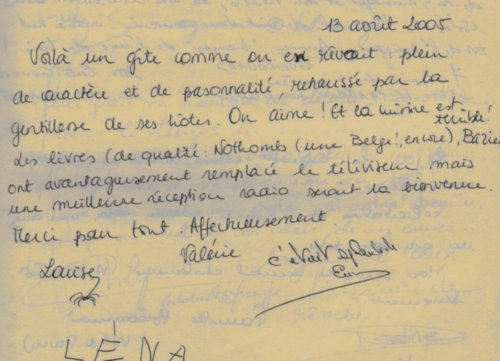 13 août 2005.
Voilà un gîte comme on en rêvait : plein
de caractère et de personnalité, rehaussée par la
gentillesse de ses hôtes. On aime ! Et la cuisine est
terrible!
Les livres (de qualité : Nothomb (une Belge!, encore),
ont avantageusement remplacé le téléviseur mais
une meilleure réception radio serait la bienvenue.
Merci pour tout. Affectueusement
Valérie
c'était
Louise
LENA